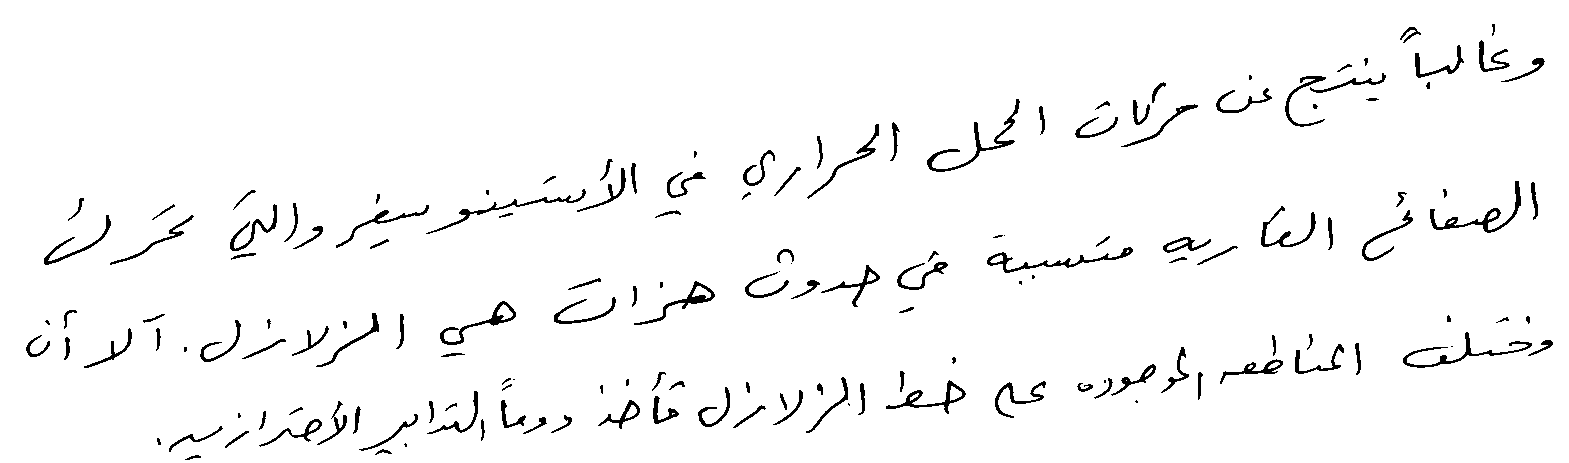 وغالباً ينتج عن حركات الحمل الحراري في الأستينوسيفير والتي تحرك
الصفائح القاريه متسببة في حدوث هزات هي الزلازل. آلا أن
وختلف المناطق الموجوده على خط الزلازل تأخذ دوماً التدابير الأحترازيه.